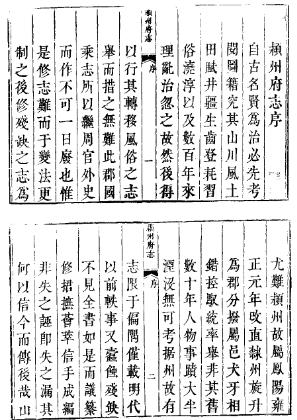 潁州府志序
自古名賢為治必先考
閱圖籍究其山川風土
田賦井疆生齒登耗習
俗澆淳以及數百年來
理亂治忽之故然後得
潁州府志 序 一
以行其轉移風俗之志
舉而措之無難此郡國
乘志所以繼周官外史
而作不可一日廢也惟
是修志難而于變法更
制之後修殘缺之志為
尤難潁州故屬鳳陽雍
正元年改直隸州旋升
為郡分撥屬邑犬牙相
錯控馭統率舉非其舊
數十年人物事蹟大半
湮沒無可考據州故有
潁州府志 序 二
志限于偏隅僅載明代
以前軼事又蠹蝕殘缺
不見全書如是而議纂
修捃摭薈萃信手成編
非失之誣即失之漏其
何以信今而傳後哉山